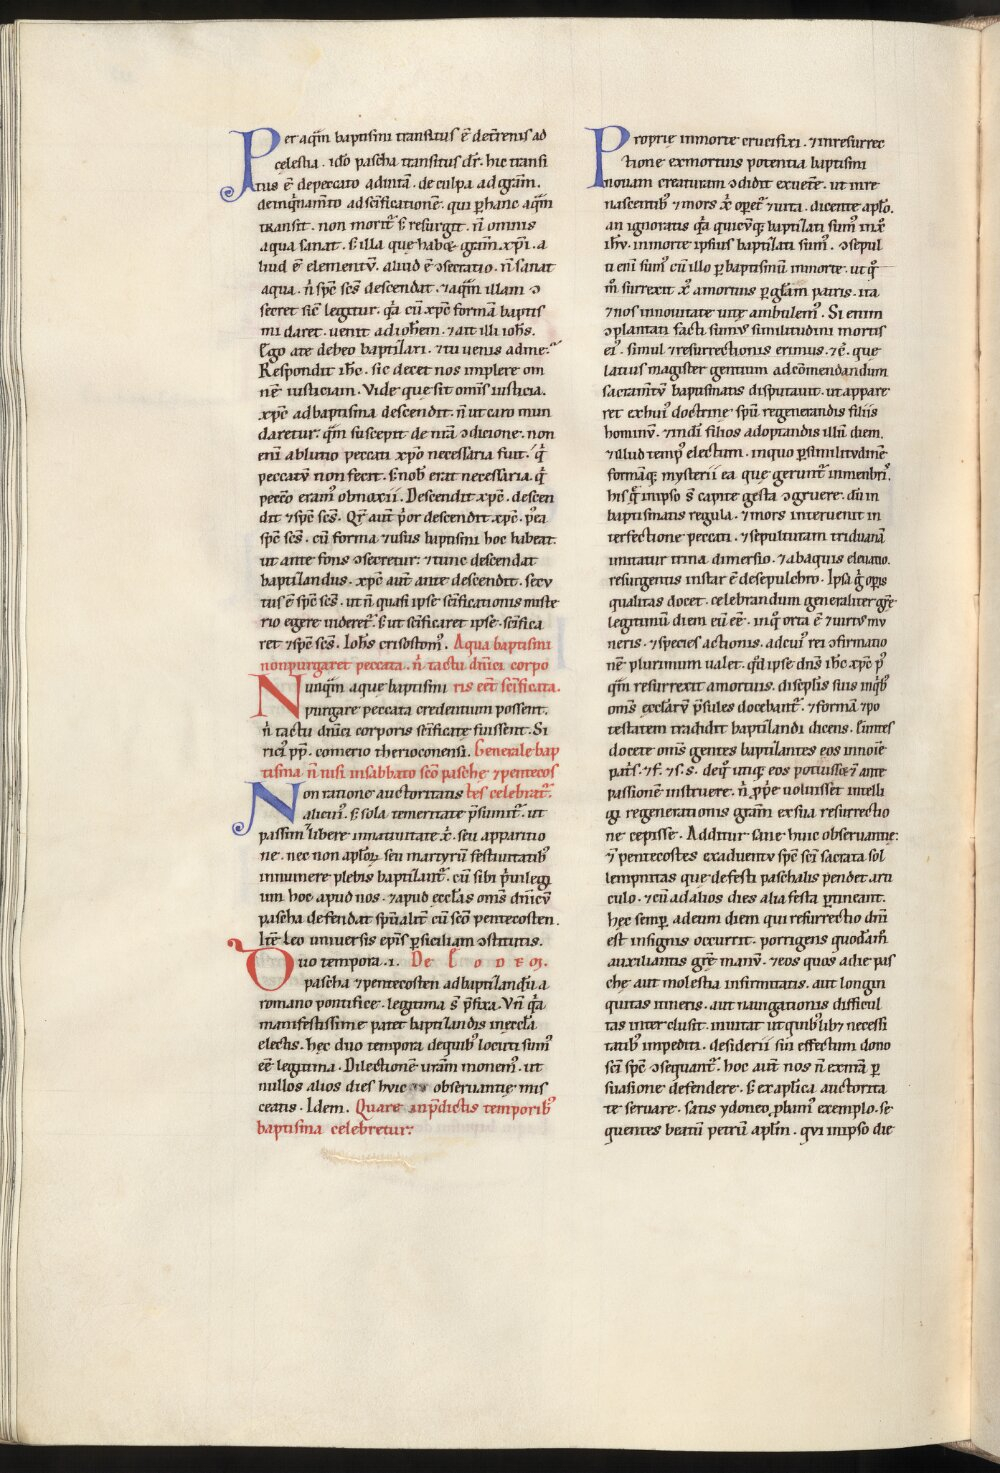 Per aqm̄ baptismi transitus ē deterrenis ad
celestia . iđo pascha transitus dr̄. hic transi
tus ē depeccato aduitā . de culpa ad grām.
deinqnam̄to adsc̄ificationē . qui ꝑhanc aqm̄
transit . non morit̄ s; resurgit . n̄ omnis
aqua sanat . s; illa que habet grām . xp̄i . a
liud ē elementū . aliud ē ↄsecratio . n̄ sanat
aqua . n̄ sp̄c sc̄s descendat . ⁊ aqm̄ illam ↄ
secret sic̄ legitur . qa cū xp̄c formā baptis
mi daret . uenit ad ioh̄em . ⁊ ait illi ioh̄s.
Ego a te debeo baptizari . ⁊ tu uenis ad me.
Respondit ih̄c . sic decet nos implere om
nē iusticiam . Vide que sit om̄is iusticia.
xp̄c ad baptisma descendit . n̄ ut caro mun
daretur . qm̄ suscepit de nr̄a ↄdicione . non
enī ablutio peccati xp̄o necessaria fuit . q
peccatū non fecit . s; nob erat necessaria . q
pecc̄o eram obnoxii . Descendit xp̄c . descen
dit ⁊ sp̄c sc̄s . Qr aut̄ por descendit . xp̄c . p̄ea
sp̄c sc̄s . cū forma ⁊ usus baptismi hoc habeat.
ut ante fons ↄsecretur . ⁊ tunc descendat
baptizandus . xp̄c aut̄ ante descendit . secu
tus ē sp̄c sc̄s . ut n̄ quasi ipse sc̄ificationis miste
rio egere uideret̄ . s; ut sc̄ificaret ipse . sc̄ifica
ret ⁊ sp̄c sc̄s . Ioh̄s crisostom⁹ . Aqua baptismi
non purgaret peccata . n̄ tactu dn̄ici corpo
Nunqm̄ aque baptismi ris eēt sc̄ificata.
purgare peccata credentium possent.
n̄ tactu dn̄ici corporis sc̄ificate fuissent . Si
rici⁹ pp̄ . comerio therioconensi . Generale bap
tisma n̄ nisi in sabbato sc̄o pasche ⁊ pentecos
Non ratione auctoritatis tes celebrat̄.
alicui⁹ . s; sola temeritate p̄sumit̄ . ut
passim libere in natiuitate x̄ . seu apparitio
ne . nec non aplꝝ seu martyrū festiuitatib⁹
innumere plebis baptizant̄ . cū sibi p̄uilegi
um hoc apud nos . ⁊ apud eccl̄as om̄s dn̄icū
pascha defendat sp̄ualit̄ cū sc̄o pentecosten.
Itē Leo uniuersis ep̄is ꝑ siciliam ↄstitutis.
Duo tempora . i . De Eodem.
pascha ⁊ pentecosten ad baptizandū a
romano pontifice . legitima s̄ p̄fixa . Vn̄ qa
manifestissime patet baptizandis in eccl̄a
electis . hęc duo tempora de quib⁹ locuti sum⁹
eē legitima . Dilectionē ur̄am monem⁹ . ut
nullos alios dies huic obseruantię mis
ceatis . Idem . Quare in p̄dictis temporib⁹
baptisma celebretur.
Proprie in morte crucifixi . ⁊ in resurrec
tione ex mortuis potentia baptismi
nouam creaturam ↄdidit ex uetē . ut in re
nascentib⁹ ⁊ mors x̄ operet̄ ⁊ uita . dicente aplo.
an ignoratis qa quicūq; baptizati sum⁹ in x̄
ih̄u . in morte ipsius baptizati sum⁹ . ↄsepul
ti enī sum⁹ cū illo ꝑ baptismū in morte . ut q
m̄ surrexit x̄ a mortuis ꝑ gl̄am patris . ita
⁊ nos in nouitate uitę ambulem⁹ . Si enim
ↄplantati facti sumus similitudini mortis
ei⁹ . simul ⁊ resurrectionis erimus . ⁊ c̄ . que
latius magister gentium ad cōmendandum
sacram̄tū baptismatis disputauit . ut appare
ret ex hui⁹ doctrine sp̄u regenerandis filiis
hominū . ⁊ in di filios adoptandis illū diem.
⁊ illud temp⁹ electum . in quo ꝑ similitudinē
formāq; mysterii ea que gerunt̄ in menbri⁹.
his q in ipso s̄ capite gesta ↄgruere . dū in
baptismatis regula . ⁊ mors interuenit in
terfectione peccati . ⁊ sepulturam triduanā
imitatur trina dimersio . ⁊ ab aquis eleuatio.
resurgentis instar ē de sepulchro . Ipsa g̊ opis
qualitas docet . celebrandum generaliter grę
legitimū diem eū eē . in q orta ē ⁊ uirtus mu
neris . ⁊ species actionis . ad cui⁹ rei ↄfirmatio
nē plurimum ualet . qd ipse dn̄s ih̄c xp̄c p⁹
qm̄ resurrexit a mortuis . discipl̄is suis in qib⁹
om̄s eccl̄arū p̄sules docebant̄ . ⁊ formā ⁊ po
testatem tradidit baptizandi dicens . Euntes
docete om̄s gentes baptizantes eos in noīe
pat̄s . ⁊ f . ⁊ s . s . de q⁹ utiq; eos potuisset ante
passionē instruere . n̄ p̄pe uoluisset intelli
gi regenerationis grām ex sua resurrectio
ne cepisse . Additur sane huic obseruantię:
⁊ pentecostes ex aduentu sp̄c sc̄i sacrata sol
lempnitas que de festi paschalis pendet arti
culo . ⁊ cū ad alios dies alia festa ꝑtineant.
hęc semꝑ ad eum diem qui resurrectio dn̄i
est insignis occurrit . porrigens quodam̄
auxiliantis grę manū . ⁊ eos quos a die pas
che aut molestia infirmitatis . aut longin
quitas itineris . aut nauigationis difficul
tas interclusit . inuitat ut quib⁹lib; necessi
tatib⁹ impediti . desiderii sui effectum dono
sc̄i sp̄c ↄsequant̄ . hoc aut̄ nos n̄ ex nr̄a ꝑ
suasione defendere . s; ex aplica auctorita
te seruare . satis ydoneo ꝓbam⁹ exemplo . se
quentes beatū petrū aplm . qui in ipso die